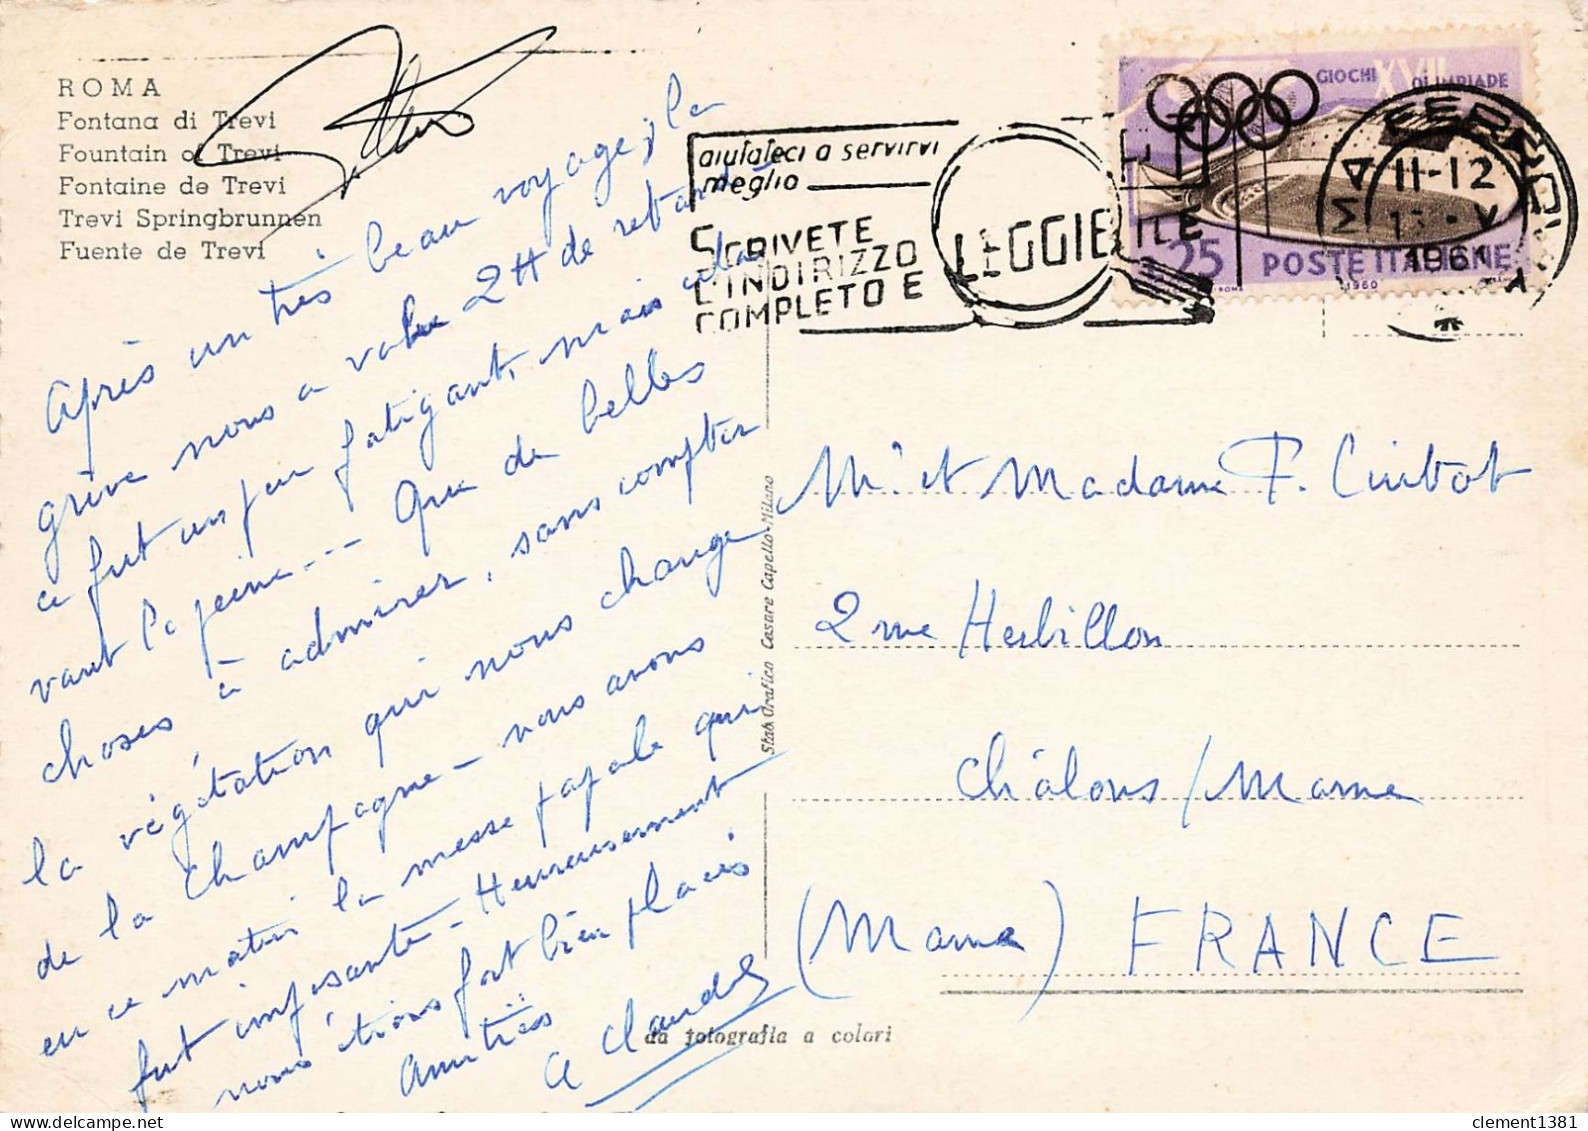 ROMA
Fontana di Trevi
Fountain of Trevi
Fontaine de Trevi
Trevi Springbrunnen
Fuente de Trevi
Après un très beau voyage, la
grève nous a valu 2H de retard
ce fut un peu fatigant, mais cela
vaut la peine... Que de belles
choses à admirer, sans compter
la végétation qui nous change
de la Champagne - nous avons
eu ce matin la messe papale qui
fut imposante - Heureusement
nous étions fort bien placés
Amitiés
Stab. Grafico Cesare Capello-Milano
aiutateci a servirvi
meglio
SCRIVETE
L'INDIRIZZO
COMPLETO E
LEGGIBILE
GIOCHI XVII OLIMPIADE
25 POSTE ITALIANE
1960
FERROVIA
11-12
1961
Mr et Madame F.
2 rue Herbillon
Châlons / Marne
(Marne) FRANCE
da fotografia a colori
clement1381